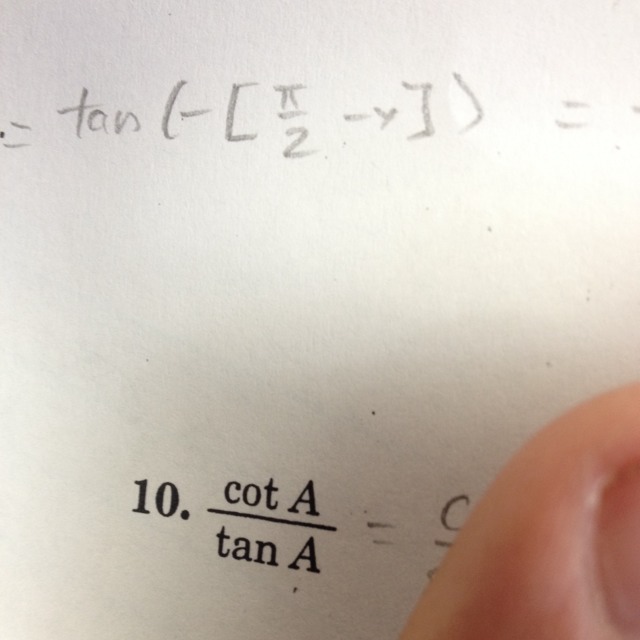 = tan (-[π/2 -y]) =
10. cot A / tan A =